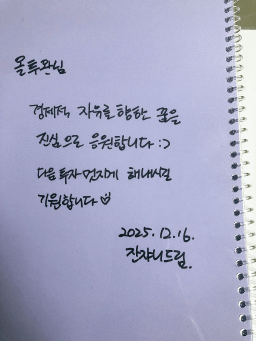 올투완님
경제적 자유를 향한 꿈을
진심으로 응원합니다 :>
다음 투자 멋지게 해내시길
기원합니다
2025. 12. 16.
잔쟈니드림.